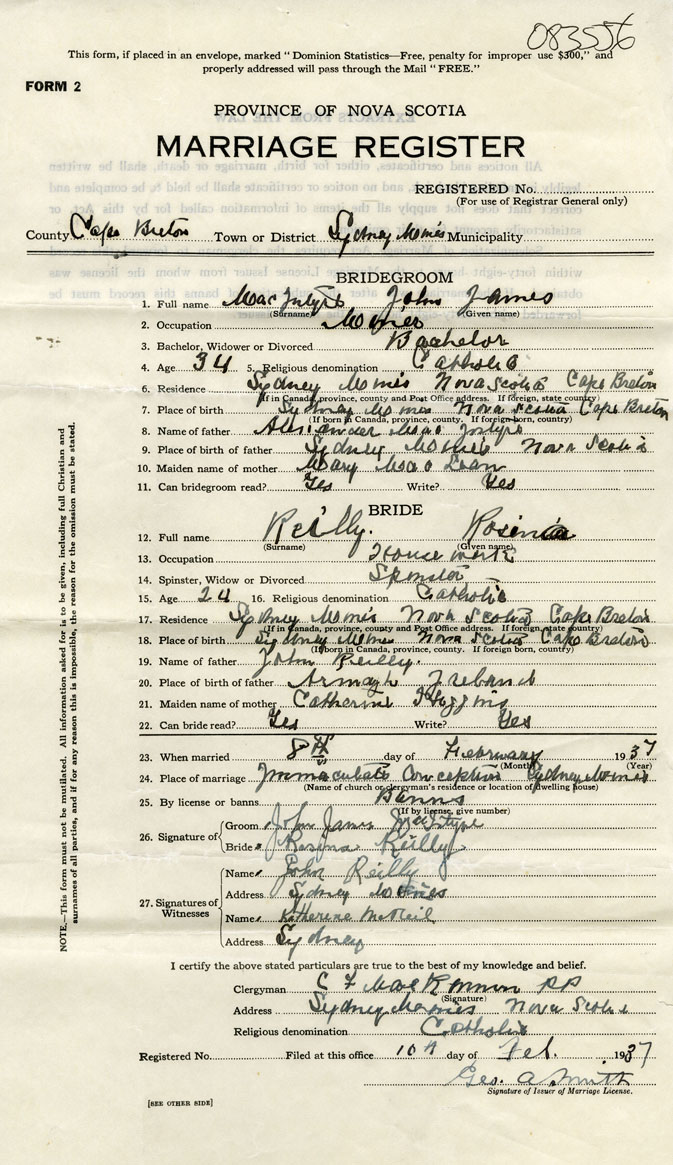 083556
This form, if placed in an envelope, marked " Dominion Statistics—Free, penalty for improper use $300," and
properly addressed will pass through the Mail " FREE."
FORM 2
PROVINCE OF NOVA SCOTIA
MARRIAGE REGISTER
REGISTERED No.
(For use of Registrar General only)
County Cape Breton Town or District Sydney Mines Municipality
BRIDEGROOM
1. Full name MacIntyre John James
(Surname) (Given name)
2. Occupation Miner
3. Bachelor, Widower or Divorced Bachelor
4. Age 34 5. Religious denomination Catholic
6. Residence Sydney Mines Nova Scotia Cape Breton
(If in Canada, province, county and Post Office address. If foreign, state country)
7. Place of birth Sydney Mines Nova Scotia Cape Breton
(If born in Canada, province, county. If foreign born, country)
8. Name of father Alexander MacIntyre
9. Place of birth of father Sydney Mines Nova Scotia
10. Maiden name of mother Mary Mac Lean
11. Can bridegroom read? Yes Write? Yes
BRIDE
12. Full name Reilly. Rosina
(Surname) (Given name)
13. Occupation House work
14. Spinster, Widow or Divorced Spinster
15. Age 24 16. Religious denomination Catholic
17. Residence Sydney Mines Nova Scotia Cape Breton
(If in Canada, province, county and Post Office address. If foreign, state country)
18. Place of birth Sydney Mines Nova Scotia Cape Breton
(If born in Canada, province, county. If foreign born, country)
19. Name of father John Reilly.
20. Place of birth of father Armagh Ireland
21. Maiden name of mother Catherine Higgins
22. Can bride read? Yes Write? Yes
23. When married 8th day of February 1937
(Month) (Year)
24. Place of marriage Immaculate Conception Sydney Mines
(Name of church or clergyman's residence or location of dwelling house)
25. By license or banns Banns
(If by license, give number)
26. Signature of Groom John James McIntyre
Bride Rosina Reilly
27. Signatures of Witnesses Name John Reilly
Address Sydney Mines
Name Katherine McNeil
Address Sydney
I certify the above stated particulars are true to the best of my knowledge and belief.
Clergyman C F MacKinnon PP
(Signature)
Address Sydney Mines Nova Scotia
Religious denomination Catholic
Registered No. Filed at this office 10th day of Feb. 1937
Geo. A Smith
Signature of Issuer of Marriage License.
[SEE OTHER SIDE]
NOTE.—This form must not be mutilated. All information asked for is to be given, including full Christian and
surnames of all parties, and if for any reason this is impossible, the reason for the omission must be stated.